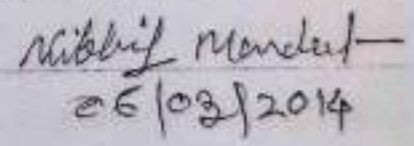 Nikhil Mondal
06/03/2014